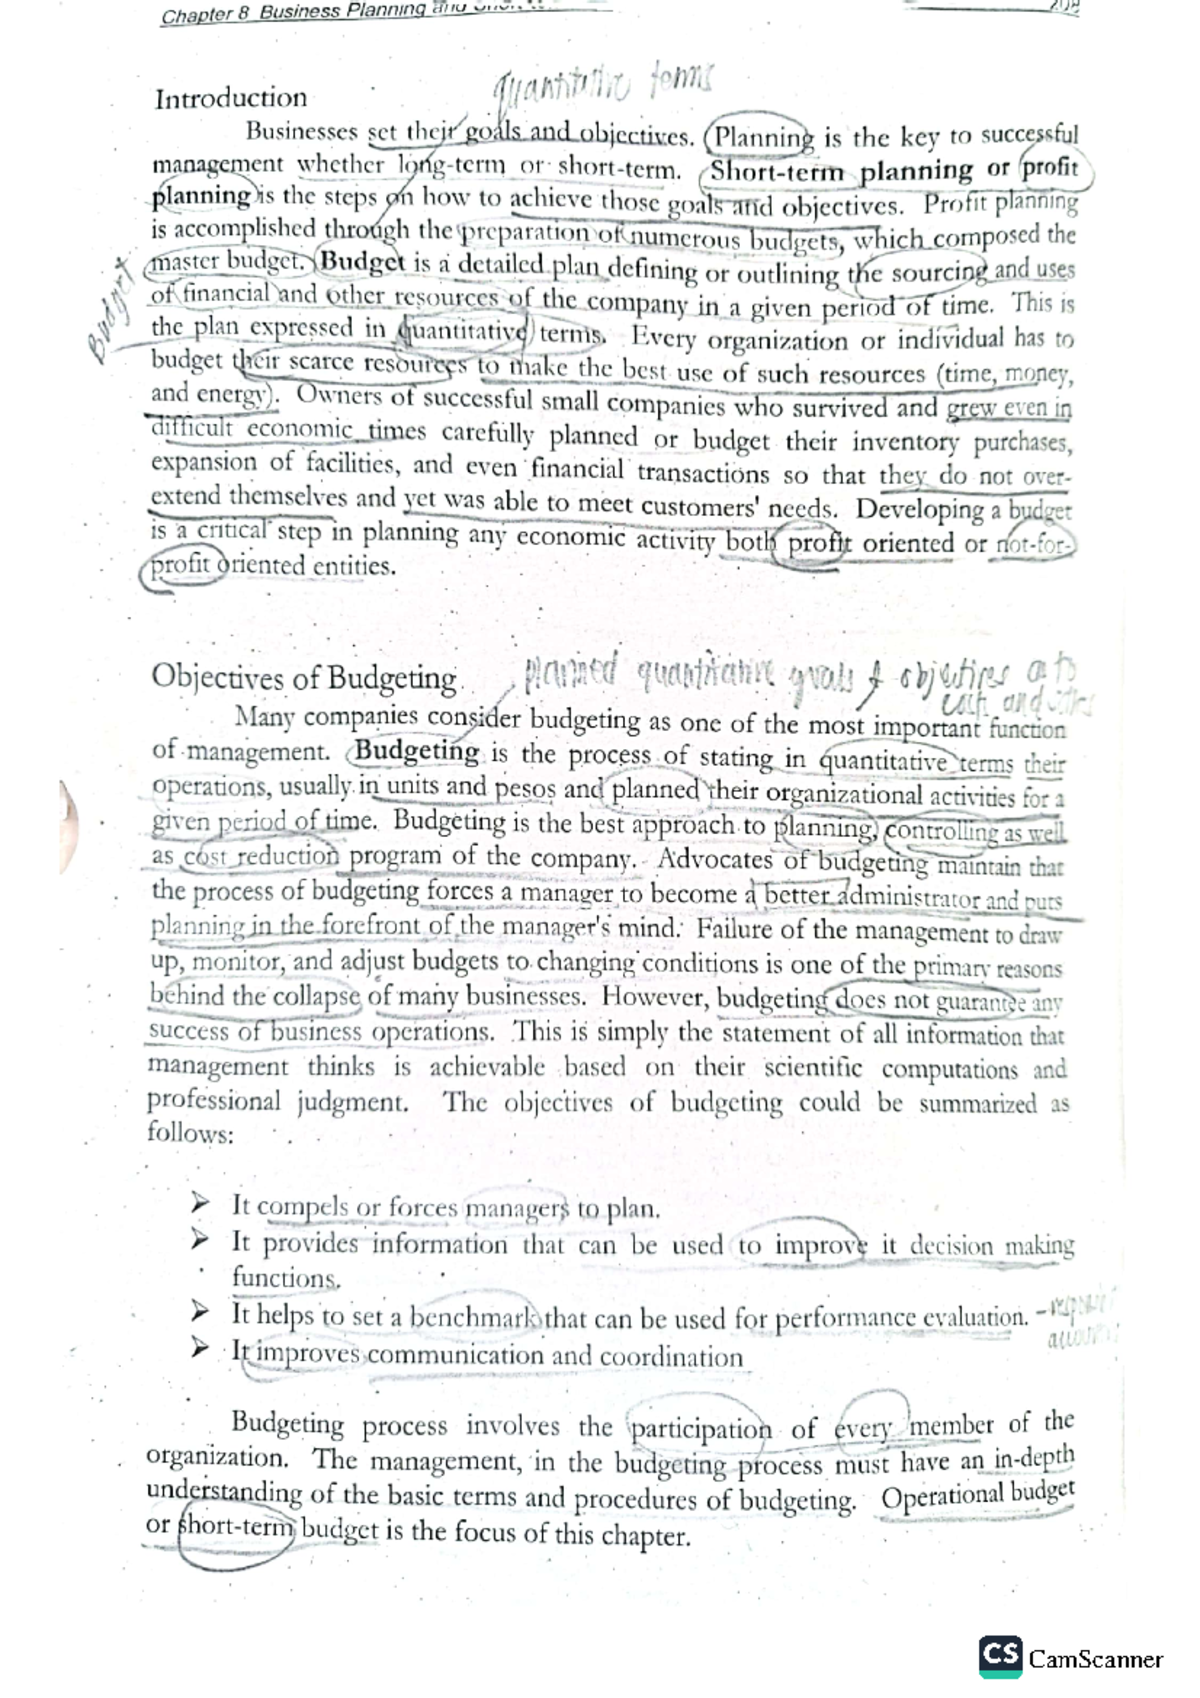 Chapter 8 Business Planning and
208
quantitative terms
Introduction
Businesses set their goals and objectives. Planning is the key to successful
management whether long-term or short-term. Short-term planning or profit
planning is the steps on how to achieve those goals and objectives. Profit planning
is accomplished through the preparation of numerous budgets, which composed the
master budget. Budget is a detailed plan defining or outlining the sourcing and uses
of financial and other resources of the company in a given period of time. This is
the plan expressed in quantitative terms. Every organization or individual has to
Budget
budget their scarce resources to make the best use of such resources (time, money,
and energy). Owners of successful small companies who survived and grew even in
difficult economic times carefully planned or budget their inventory purchases,
expansion of facilities, and even financial transactions so that they do not over-
extend themselves and yet was able to meet customers' needs. Developing a budget
is a critical step in planning any economic activity both profit oriented or not-for-
profit oriented entities.
Objectives of Budgeting
planned quantitative goals & objectives
Many companies consider budgeting as one of the most important function
of management. Budgeting is the process of stating in quantitative terms their
operations, usually in units and pesos and planned their organizational activities for a
given period of time. Budgeting is the best approach to planning, controlling as well
as cost reduction program of the company. Advocates of budgeting maintain that
the process of budgeting forces a manager to become a better administrator and puts
planning in the forefront of the manager's mind. Failure of the management to draw
up, monitor, and adjust budgets to changing conditions is one of the primary reasons
behind the collapse of many businesses. However, budgeting does not guarantee any
success of business operations. This is simply the statement of all information that
management thinks is achievable based on their scientific computations and
professional judgment. The objectives of budgeting could be summarized as
follows:
➢ It compels or forces managers to plan.
➢ It provides information that can be used to improve it decision making
functions.
➢ It helps to set a benchmark that can be used for performance evaluation.
➢ It improves communication and coordination
Budgeting process involves the participation of every member of the
organization. The management, in the budgeting process must have an in-depth
understanding of the basic terms and procedures of budgeting. Operational budget
or short-term budget is the focus of this chapter.
CS CamScanner